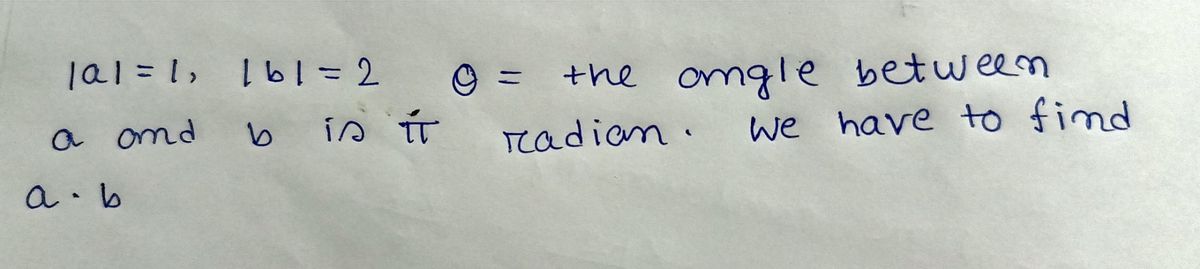 |a| = 1, |b| = 2 θ = the angle between
a and b is π radian. We have to find
a · b